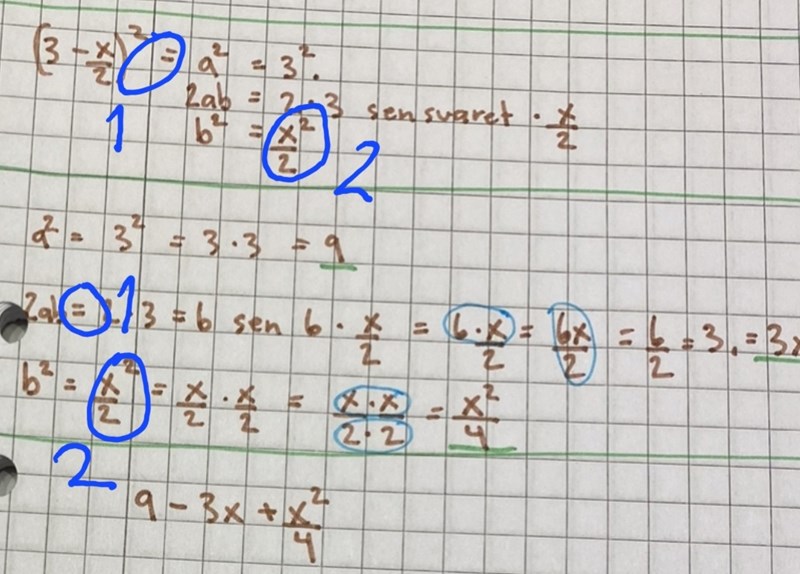 (3 - x/2)² = a² = 3².
2ab = 2·3 sen svaret · x/2
b² = x²/2
1
2
a² = 3² = 3·3 = 9
2ab = 2·3 = 6 sen 6 · x/2 = 6·x/2 = 6x/2 = 6/2 = 3. = 3x
1
b² = x²/2 = x/2 · x/2 = x·x/2·2 = x²/4
2
9 - 3x + x²/4